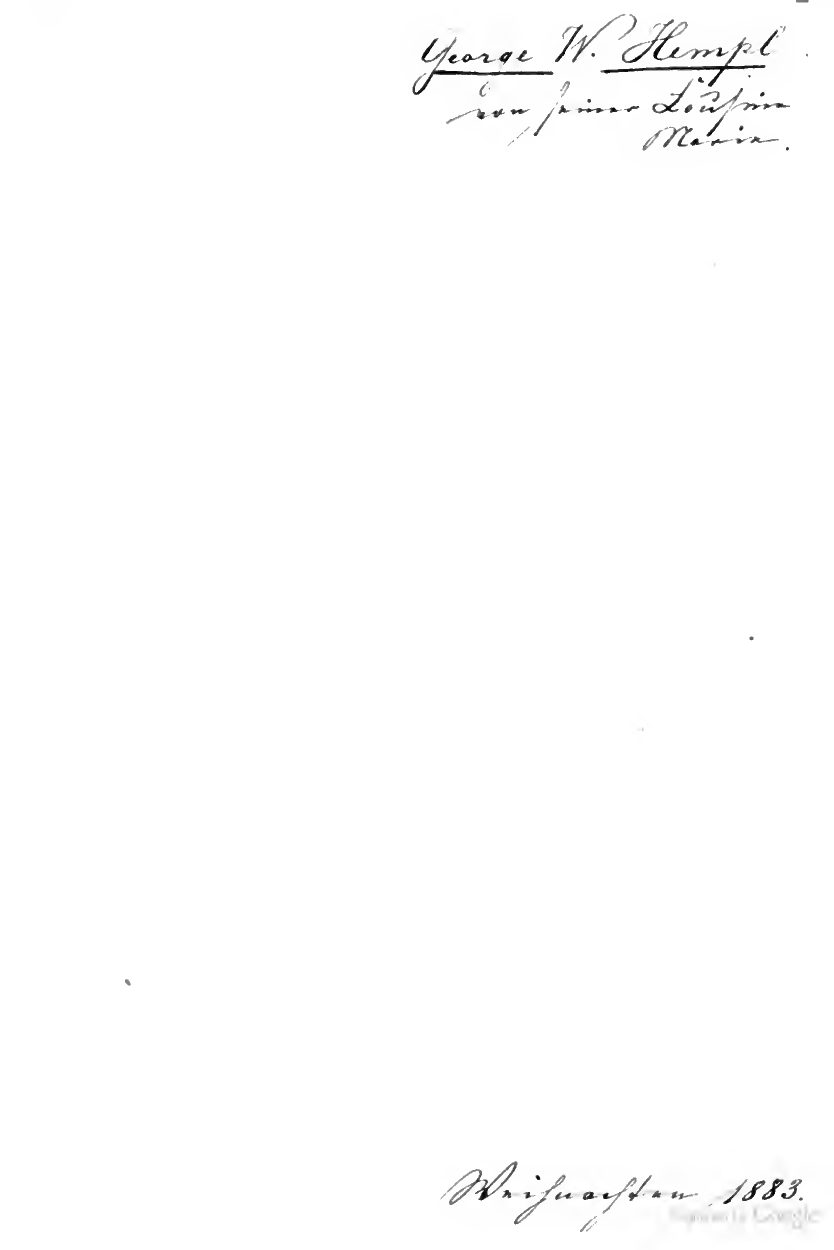 George W. Hempl
von seiner Cousine
Marie.
Weihnachten 1883.
Digitized by Google